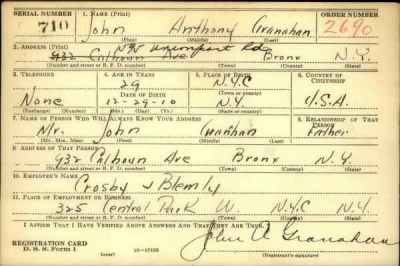 SERIAL NUMBER 1. NAME (Print) ORDER NUMBER
710 John Anthony Granahan 2690
(First) (Middle) (Last)
2. ADDRESS (Print)
932 Calhoun Ave Bronx N.Y.
(Number and street or R. F. D. number) (Town) (County) (State)
3. TELEPHONE 4. AGE IN YEARS 5. PLACE OF BIRTH 6. COUNTRY OF CITIZENSHIP
29 N.Y.C
DATE OF BIRTH (Town or county)
None 12-29-10 N.Y. U.S.A
(Exchange) (No.) (Mo.) (Day) (Yr.) (State or country)
7. NAME OF PERSON WHO WILL ALWAYS KNOW YOUR ADDRESS 8. RELATIONSHIP OF THAT PERSON
Mr. John Father
(Mr., Mrs., Miss) (First) (Middle) (Last)
9. ADDRESS OF THAT PERSON
932 Calhoun Ave Bronx N.Y.
(Number and street or R. F. D. number) (Town) (County) (State)
10. EMPLOYER'S NAME
Crosby & Blemly
11. PLACE OF EMPLOYMENT OR BUSINESS
325 Central Park W. N.Y.C N.Y.
(Number and street or R. F. D. number) (Town) (County) (State)
I AFFIRM THAT I HAVE VERIFIED ABOVE ANSWERS AND THAT THEY ARE TRUE.
REGISTRATION CARD
D. S. S. Form 1 John A Granahan
(Registrant's signature)